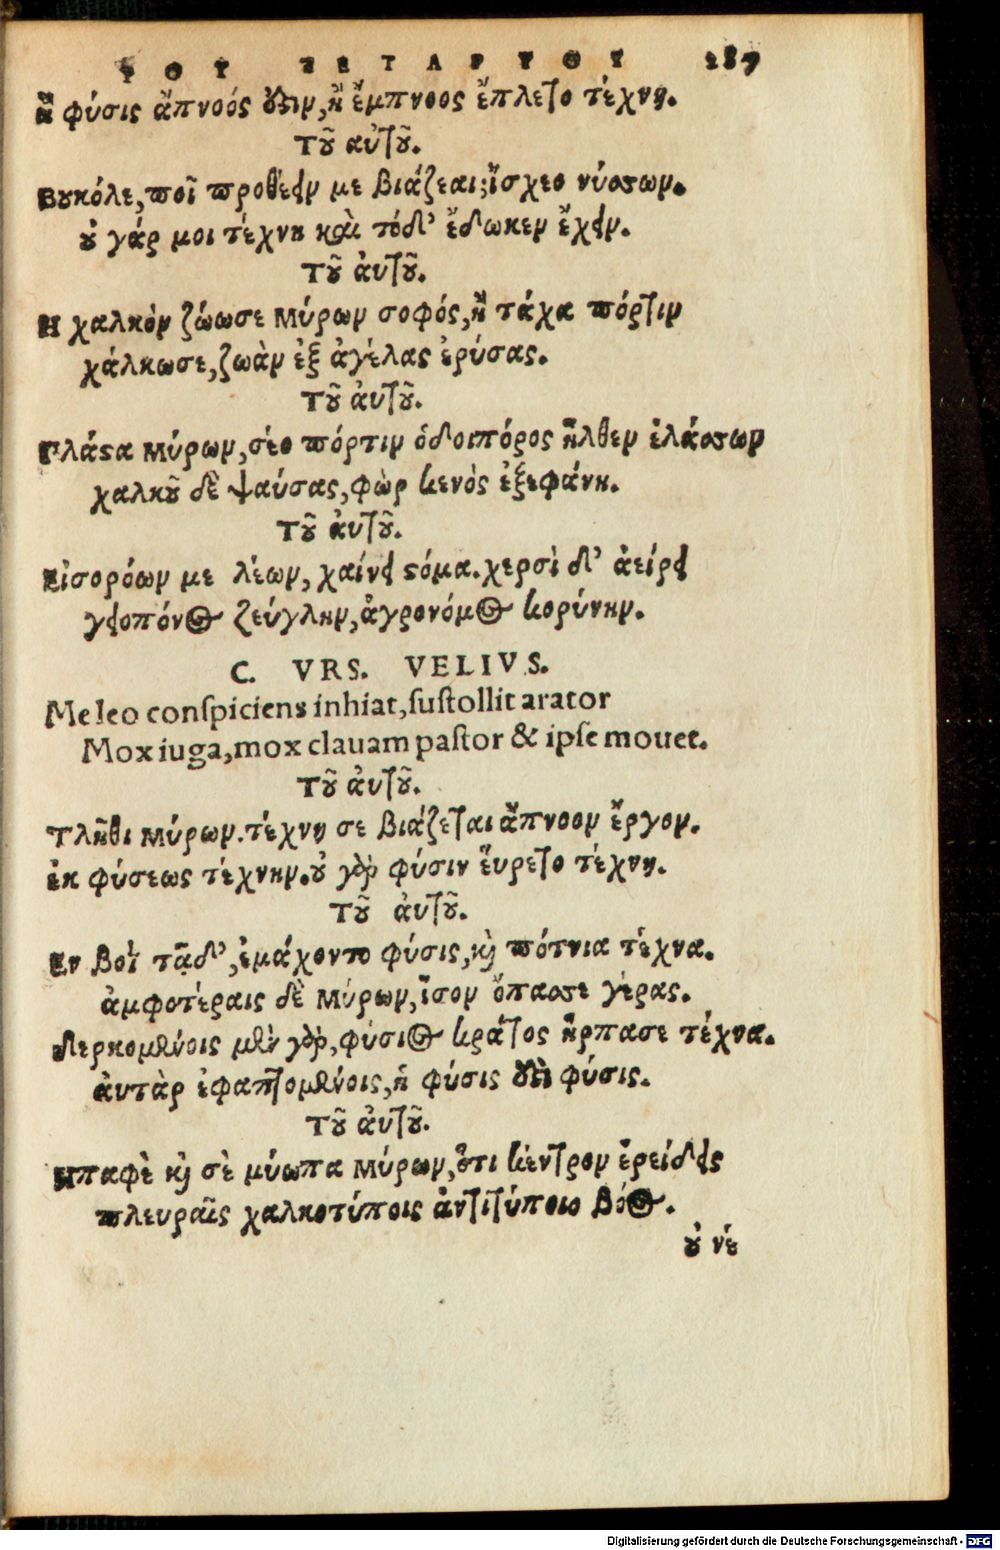 ΤΟΥ ΤΕΤΑΡΤΟΥ 287
ἢ φύσις ἄπνοός ἐστιν, ἢ ἔμπνοος ἔπλετο τέχνη.
Τοῦ αὐτοῦ.
Βουκόλε, ποῖ προθέειν με βιάζεαι; ἴσχεο νύσσων.
οὐ γάρ μοι τέχνη καὶ τόδ' ἔδωκεν ἔχειν.
Τοῦ ἀυτοῦ.
Η χαλκὸν ζώωσε Μύρων σοφός, ἢ τάχα πόρτιν
χάλκωσε, ζωὰν ἐξ ἀγέλας ἐρύσας.
Τοῦ ἀυτοῦ.
Πλάστα Μύρων, σέο πόρτιν ὁδοιπόρος ἦλθεν ἐλάσσων
χαλκοῦ δὲ ψαύσας, φὼρ κενὸς ἐξεφάνη.
Τοῦ ἀυτοῦ.
Εἰσορόων με λέων, χαίνει στόμα. χερσὶ δ' ἀείρει
γειοπόνος ζεύγλην, ἀγρονόμος κορύνην.
C. VRS. VELIVS.
Me leo conſpiciens inhiat, ſuſtollit arator
Mox iuga, mox clauam paſtor & ipſe mouet.
Τοῦ ἀυτοῦ.
Τλῆθι Μύρων. τέχνη σε βιάζεται ἄπνοον ἔργον.
ἐκ φύσεως τέχνην. οὐ γὰρ φύσιν ἕυρετο τέχνη.
Τοῦ ἀυτοῦ.
Εν βοῒ τᾷδ', ἐμάχοντο φύσις, καὶ πότνια τέχνα.
ἀμφοτέραις δὲ Μύρων, ἶσον ὄπασσε γέρας.
Δερκομένοις μὲν γὰρ, φύσιος κράτος ἥρπασε τέχνα.
ἀυτὰρ ἐφαπτομένοις, ἡ φύσις ἐστὶ φύσις.
Τοῦ ἀυτοῦ.
Ηπαφὲ καὶ σὲ μύωπα Μύρων, ὅτι κέντρον ἐρείδεις
πλευραῖς χαλκοτύποις ἀντιτύποιο βόος.
οὐ νέ
Digitalisierung gefördert durch die Deutsche Forschungsgemeinschaft - DFG